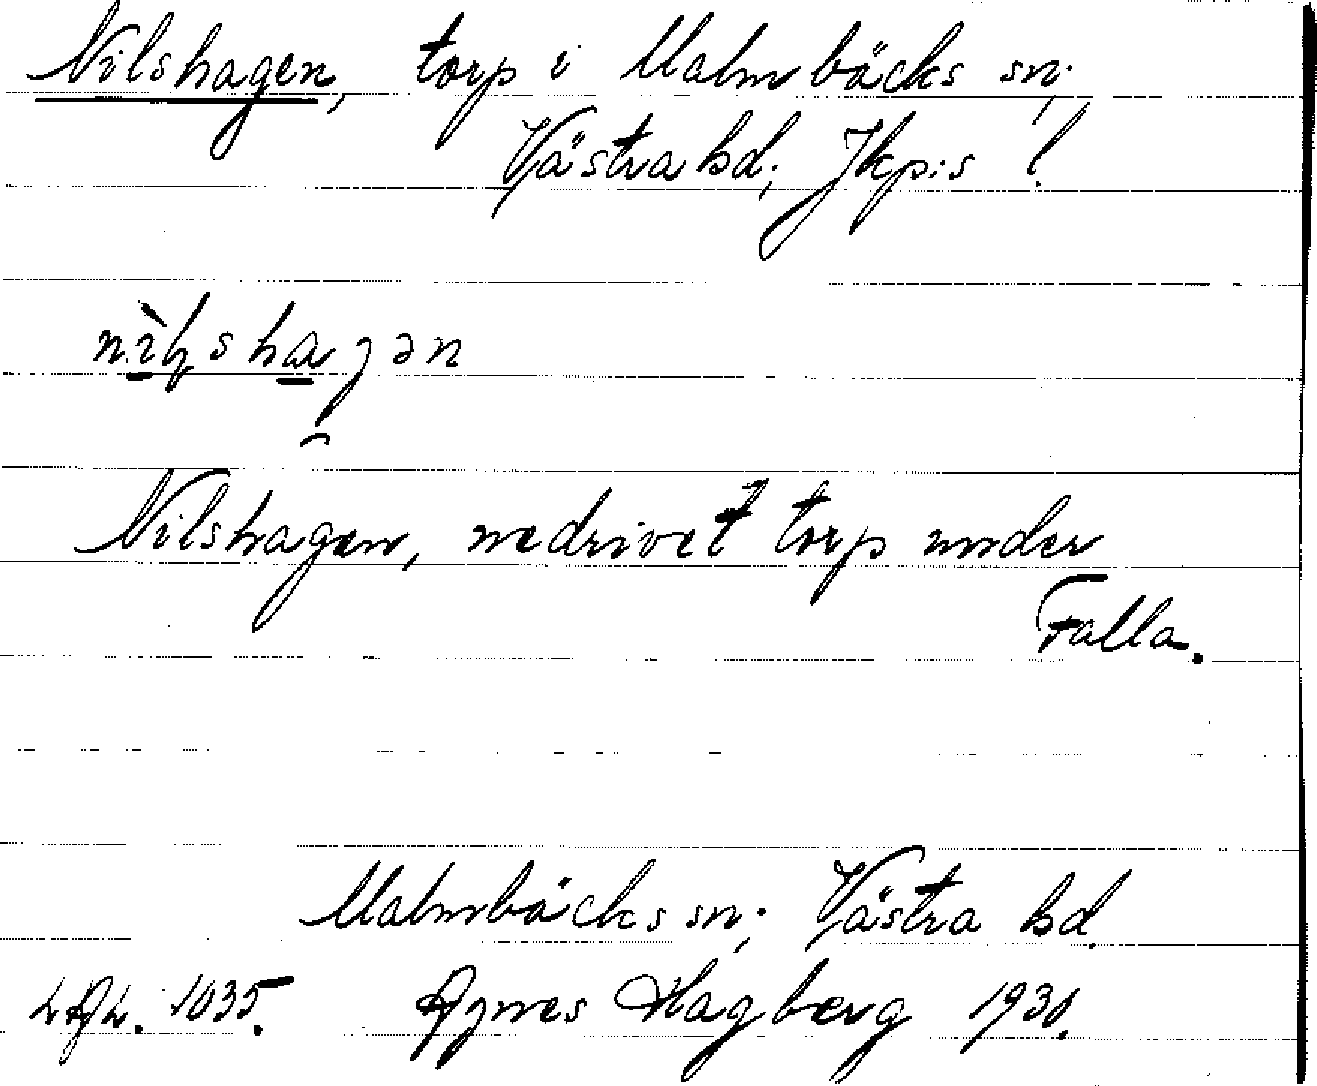 Nilshagen, torp i Malmbäcks sn;
Västra hd; Jkp:s l.
Nilshagen, nedrivet torp under
Falla.
Malmbäcks sn; Västra hd.
1035. Agnes Hagberg 1930.